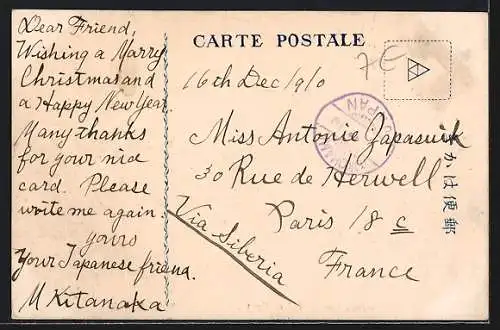 Dear Friend,
Wishing a Marry
Christmas and
a Happy New Year.
Many thanks
for your nid
card. Please
write me again.
yours
Your Japanese friend.
M Kitanaka
CARTE POSTALE
7E
16th Dec 1910
JAPAN
Miss Antonie Japasuik
30 Rue de Herwell
Paris 18 c
France
Via Siberia
きかは便郵